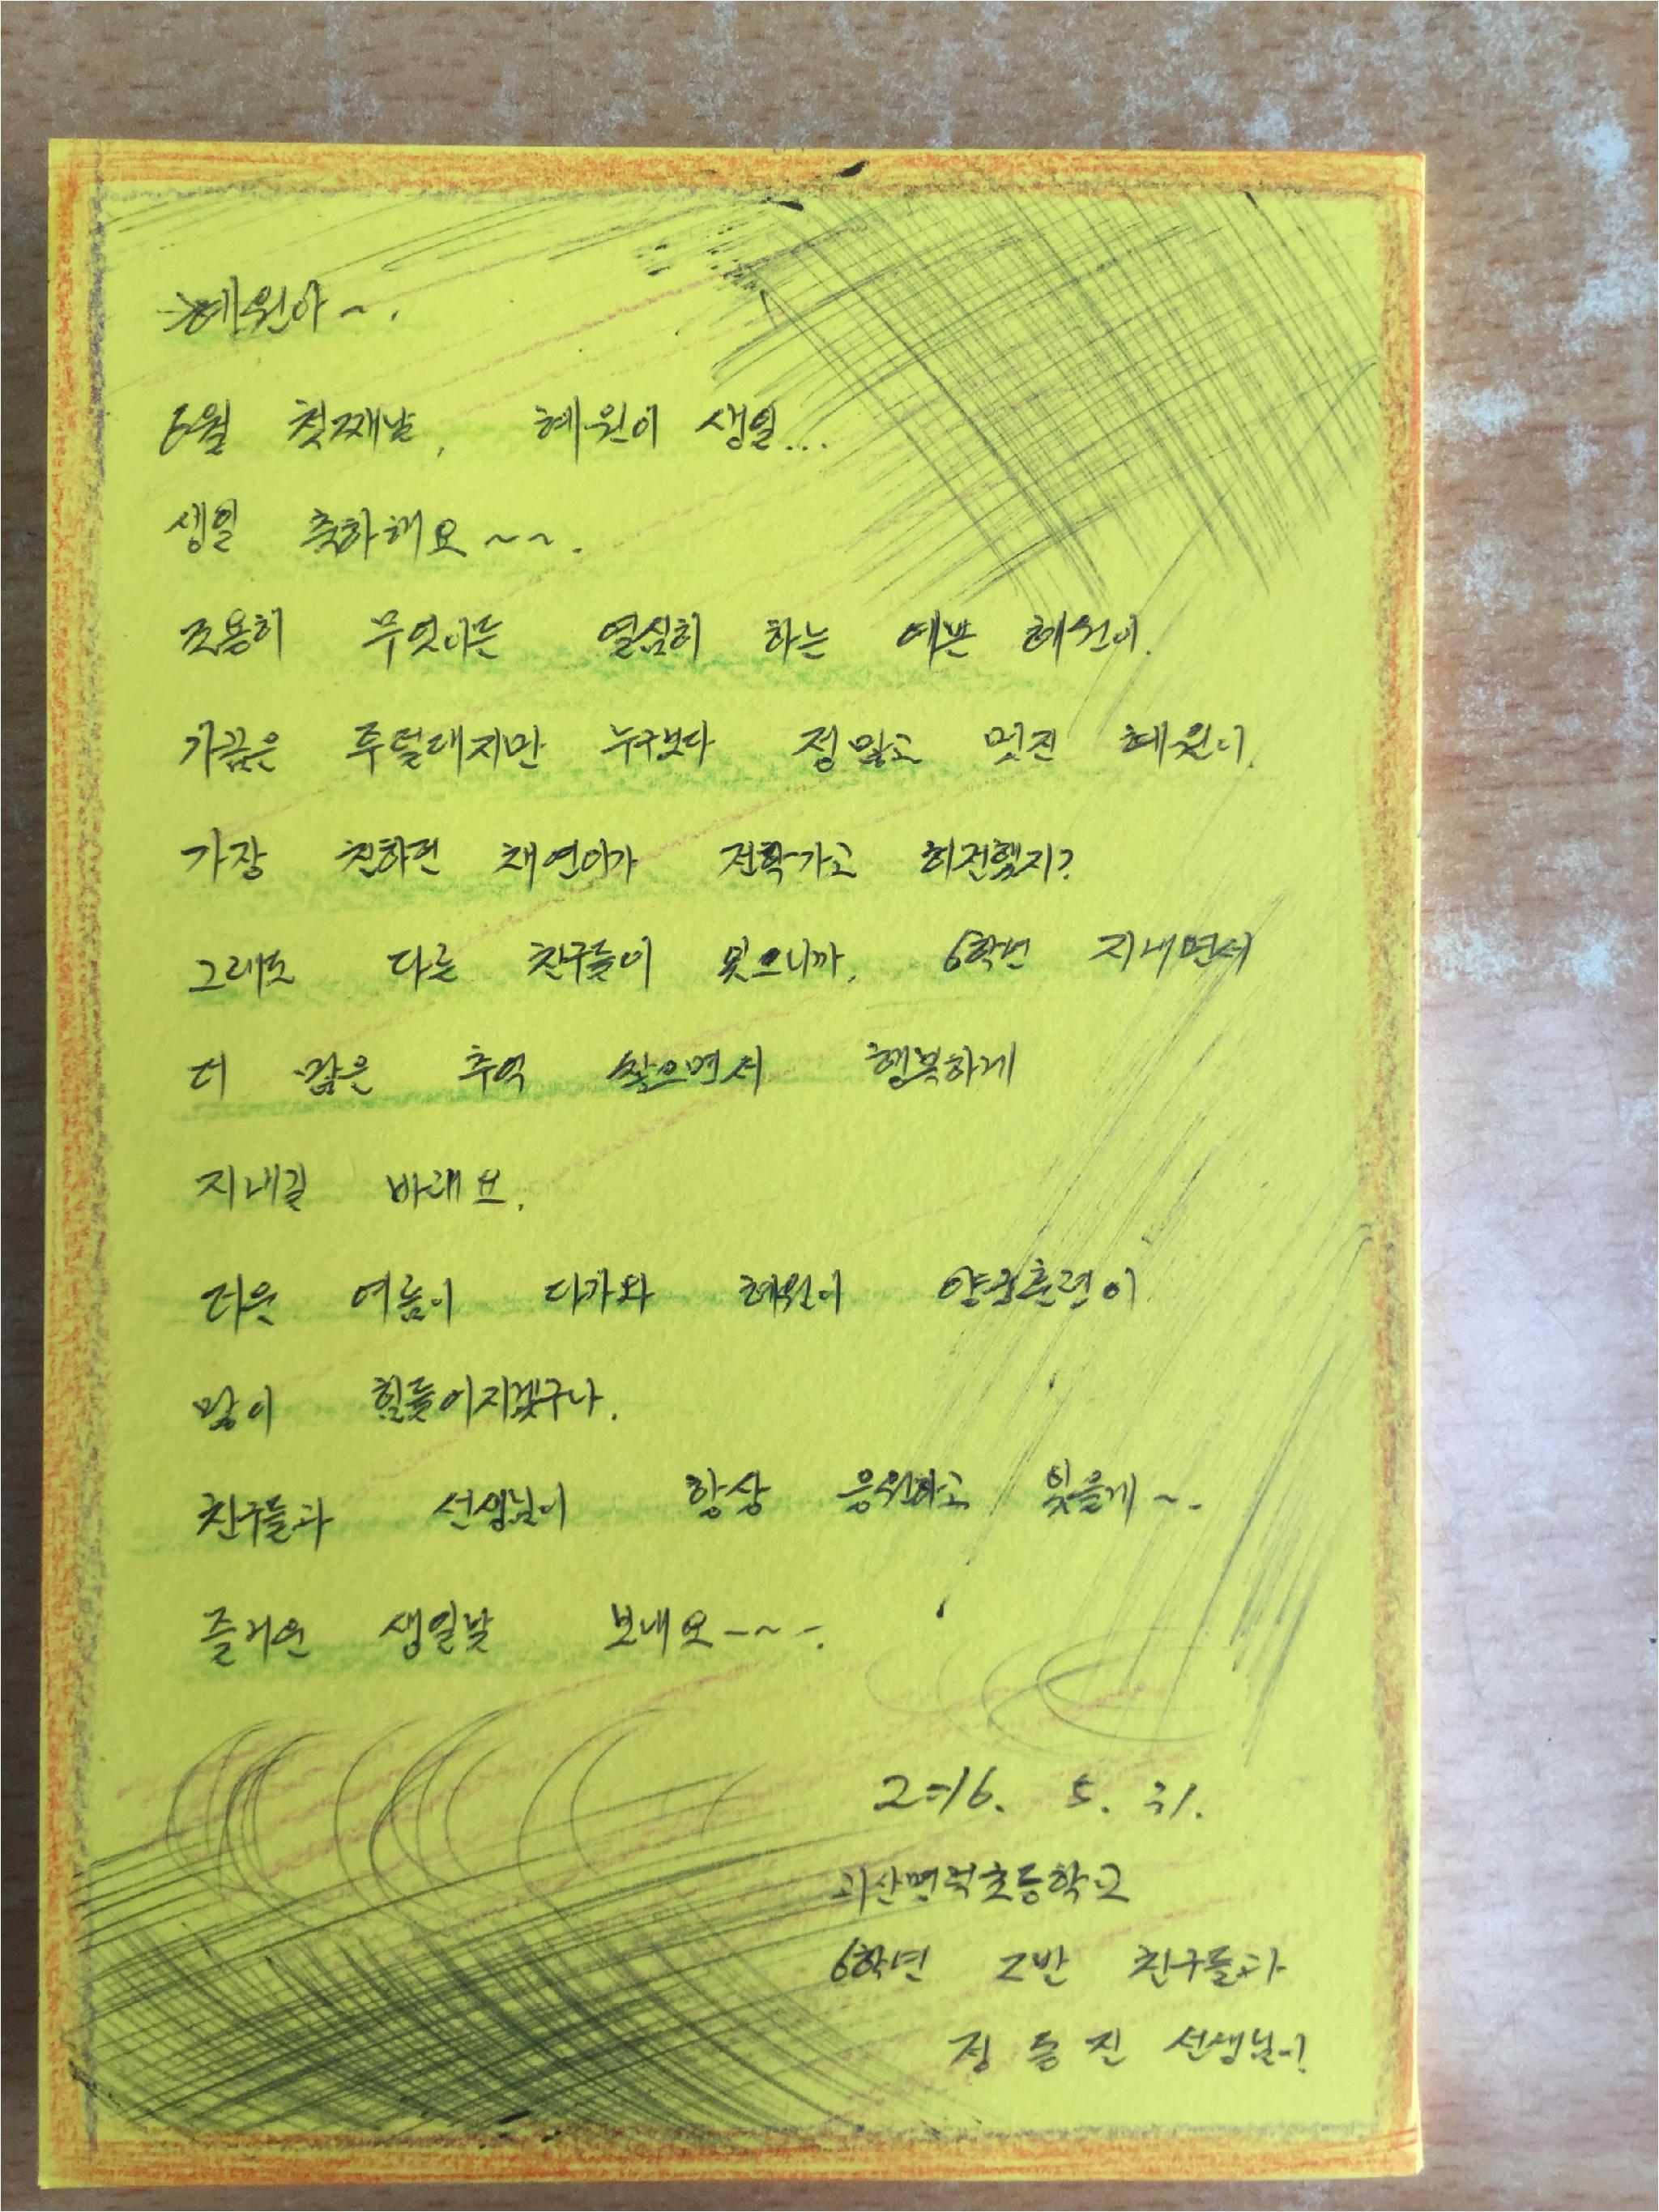 혜원아~.
6월 첫째날, 혜원이 생일...
생일 축하해요~~.
조용히 무엇이든 열심히 하는 예쁜 혜원이.
가끔은 투덜대지만 누구보다 정많고 멋진 혜원이.
가장 친하던 채연이가 전학가고 허전했지?
그래도 다른 친구들이 있으니까, 6학년 지내면서
더 많은 추억 쌓으면서 행복하게
지내길 바래요.
더운 여름이 다가와 혜원이 양궁훈련이
많이 힘들어지겠구나.
친구들과 선생님이 항상 응원하고 있을게~.
즐거운 생일날 보내요~~~.
2016. 5. 31.
6학년 2반 친구들과
정동진 선생님이